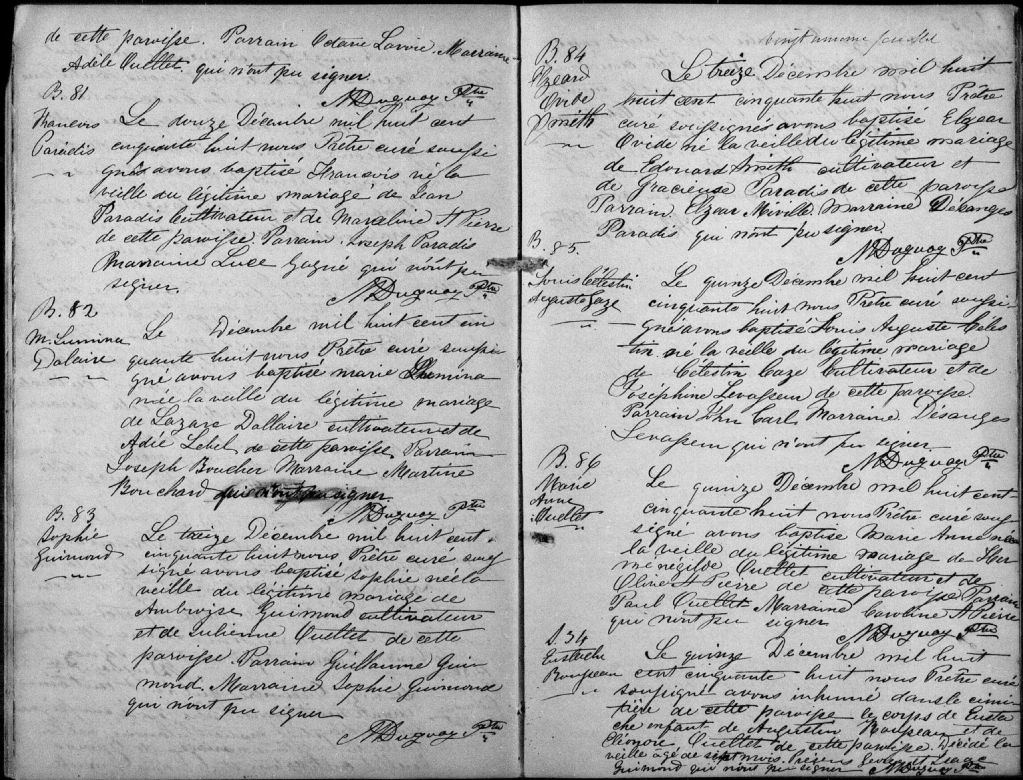 de cette paroisse. Parrain Octave Lavoie. Marraine
Adèle Ouellet qui n'ont pu signer.
N Duguay Ptre
B. 81
Francois
Paradis
Le douze Décembre mil huit cent
cinquante huit nous Prêtre curé soussi
gnés avons baptisé Francois né la
veille du légitime mariage de Jean
Paradis Cultivateur et de Marceline St Pierre
de cette paroisse Parrain. Joseph Paradis
Marraine Luce Gagné qui n'ont pu
signer.
N Duguay Ptre
B. 82
M. Lumina
Dalaire
Le Décembre mil huit cent cin
quante huit nous Prêtre curé soussi
gné avons baptisé marie Lumina
née la veille du légitime mariage
de Lazare Dallaire cultivateur et de
Adié Lebel de cette paroisse Parrain
Joseph Boucher Marraine Martine
Bouchard qui n'ont pu signer
N Duguay Ptre
B. 83
Sophie
Guimond
Le treize Décembre mil huit cent
cinquante huit nous Prêtre curé sous
signé avons baptisé sophie née la
veille du légitime mariage de
Ambroise Guimond cultivateur
et de Julienne Ouellet de cette
paroisse. Parrain Guillaume Gui
mond. Marraine Sophie Guimond
qui n'ont pu signer
N Duguay Ptre
vingt unieme feuillet
B. 84
Elzeard
Ovide
Smith
Le treize Décembre mil huit
huit cent cinquante huit nous Prêtre
curé soussignés avons baptisé Elzear
Ovide né la veille du légitime mariage
de Edouard Smith cultivateur et
de Gracieuse Paradis de cette paroisse
Parrain Elzear Miville Marraine Désanges
Paradis qui n'ont pu signer
N Duguay Ptre
B. 85.
Louis Célestin
Auguste Caze
Le quinze Décembre mil huit cent
cinquante huit nous Prêtre curé soussi
gné avons baptisé Louis Auguste Céles
tin né la veille du légitime mariage
de Célestin Caze Cultivateur et de
Joséphine Levasseur de cette paroisse.
Parrain Carl Marraine Désanges
Levasseur qui n'ont pu signer
N Duguay Ptre
B. 86
Marie
Anne
Ouellet
Le quinze Décembre mil huit cent
cinquante huit nous Prêtre curé sous
signé avons baptisé Marie Anne née
la veille du légitime mariage de Her
ménégilde Ouellet cultivateur et de
Olive St Pierre de cette paroisse Parrain
Paul Ouellet Marraine Caroline St Pierre
qui n'ont pu signer
N Duguay Ptre
S. 34
Eustache
Rousseau
Le quinze Décembre mil huit
cent cinquante huit nous Prêtre curé
soussigné avons inhumé dans le cime
tière de cette paroisse le corps de Eusta
che enfant de Augustin Rousseau et de
Eléonore Ouellet de cette paroisse. Décédé la
veille âgé de sept mois. Présens George et
Guimond qui n'ont pu signer N Duguay Ptre